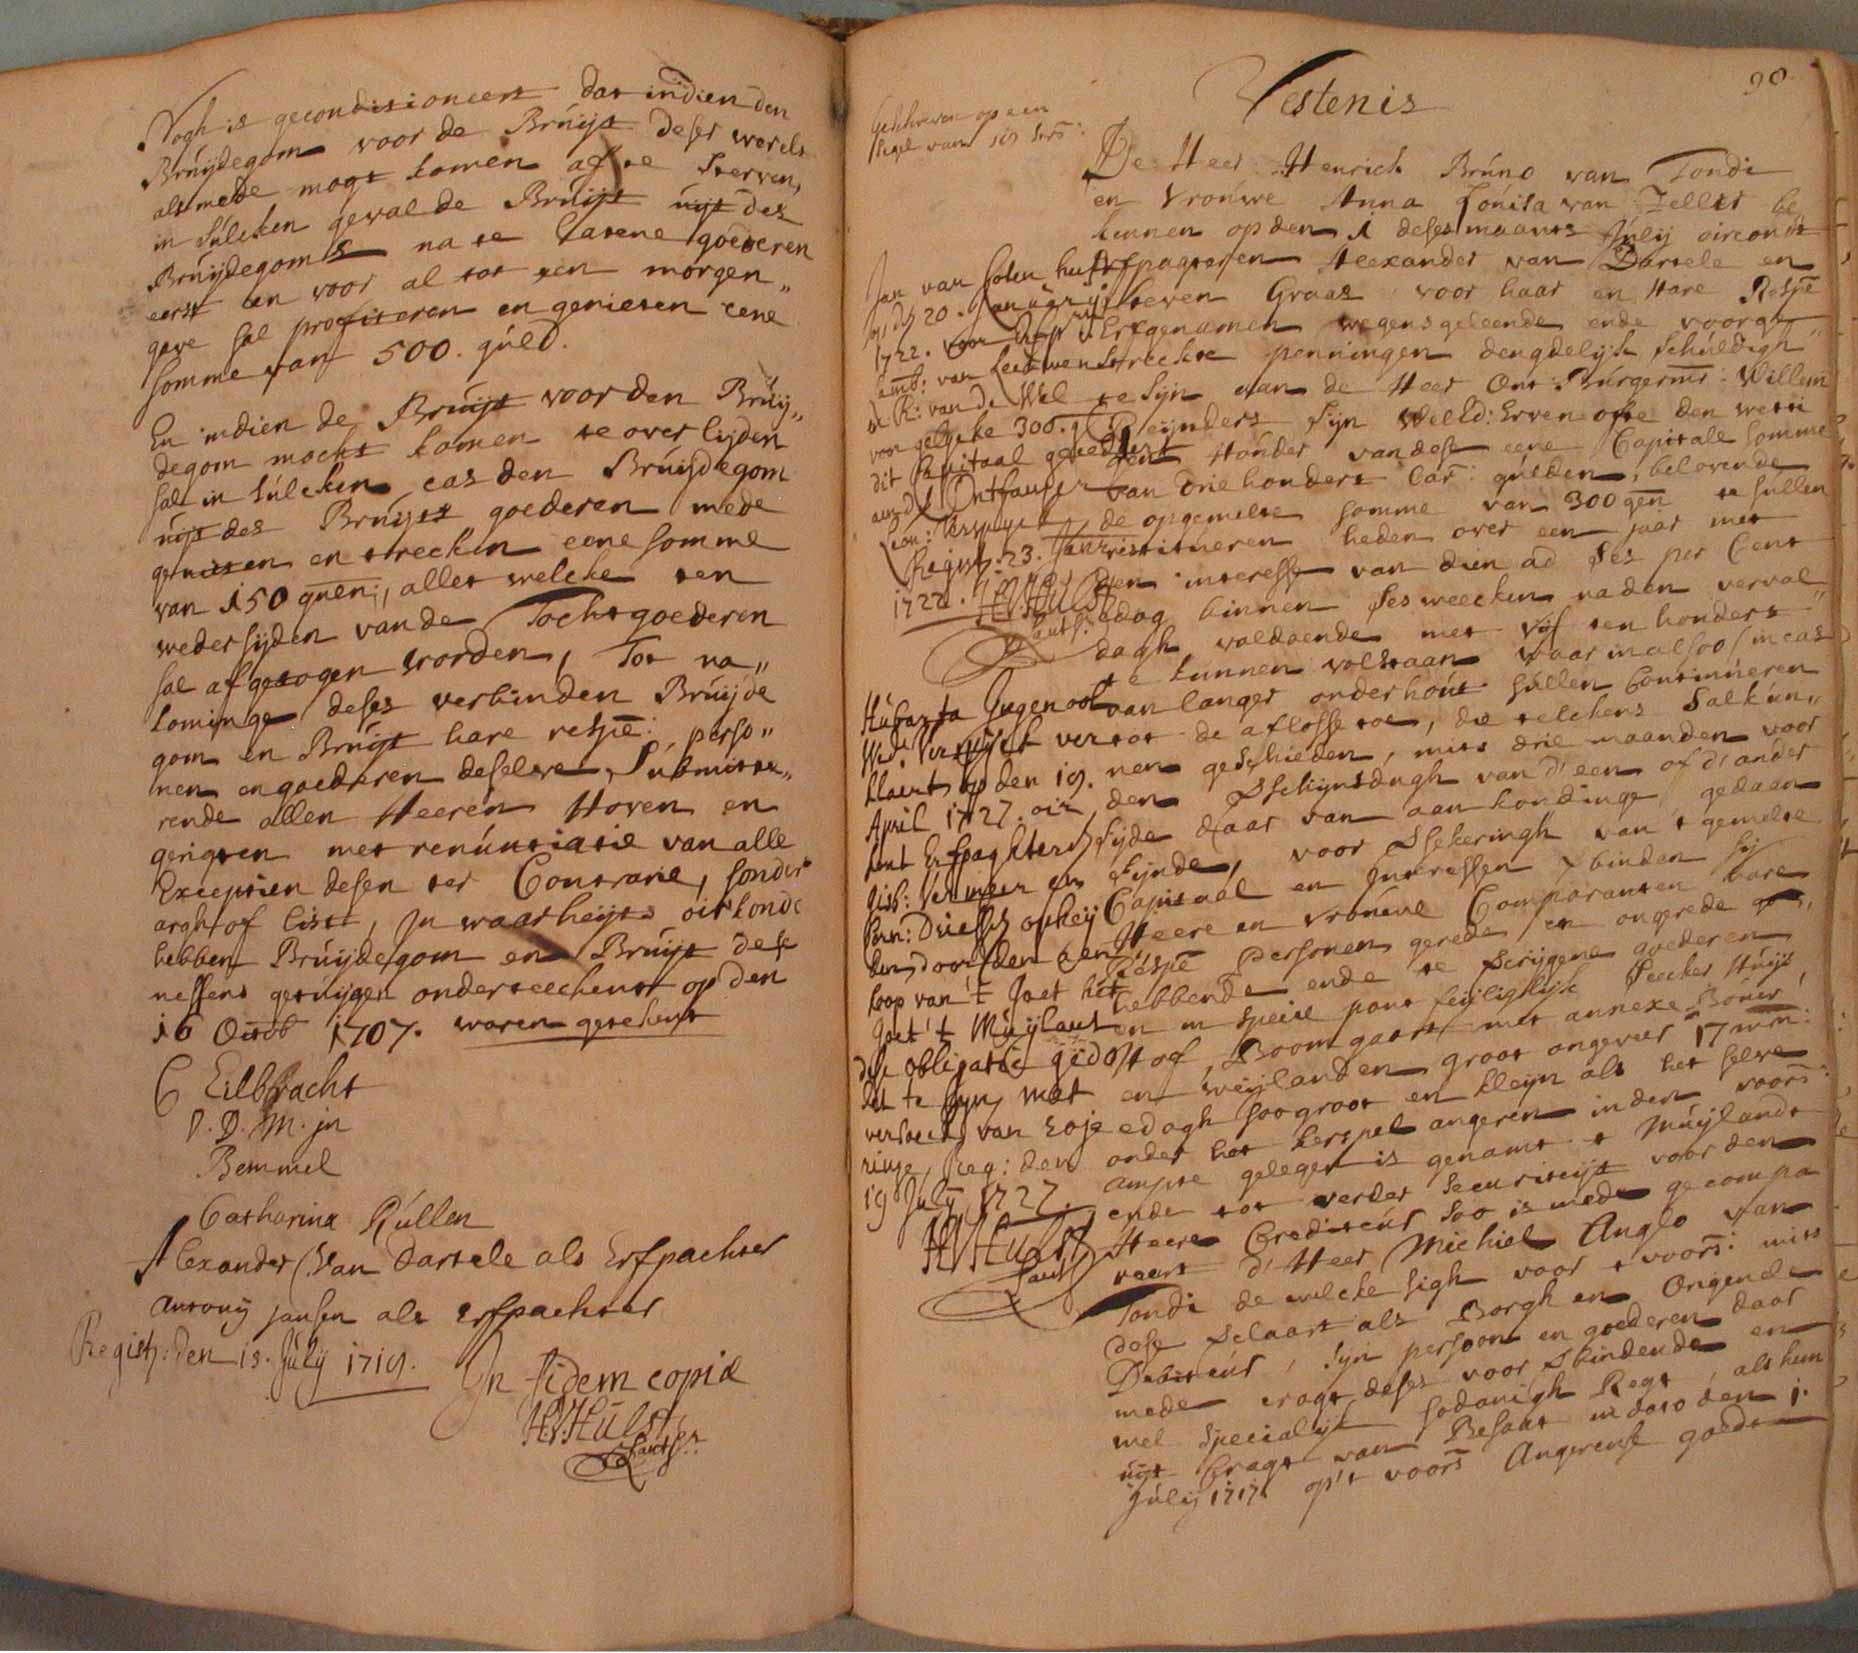 Nogh is geconditioneert dat indien den
Bruijdegom voor de Bruijt deser werelt
als mede mogt komen af te sterven,
in sulcken geval de Bruijt uijt des
Bruijdegoms na te latene goederen
eerst en voor al tot een morgen„
gave sal profiteren en genieten eene
somme van 500. guld.
En indien de Bruijt voor den Bruij„
degom mocht komen te overlijden
sal in sulcken cas den Bruijdegom
uijt des Bruijts goederen mede
genieten en trecken eene somme
van 150 guen:, alles welcke ten
weder sijden van de Tochtgoederen
sal af getogen worden, Tot na„
kominge deses verbinden Bruijde
gom en Bruijt hare respe: perso„
nen en goederen deselve, Submitte„
rende allen Heeren Hoven en
gerigten met renuntiatie van alle
Exceptien desen ter Contrarie, sonder
argh of list, In waarheijts oirkonde
hebben Bruijdegom en Bruijt dese
neffens getuijgen onderteeckent op den
16 Octob 1707. waren getekent
C Eilbracht
V. D. M. in
Bemmel
Catharina Rullen
Alexander Van Dartele als Erfpachter
Antonij Jansen als erfpachter
Registr: den 15. Julij 1719.
In fidem copiae
H.V.Hulst
Lantsr:
90.
Vestenis
Geschreven op een
segel van 15 strs:
De Heer Henrich Bruno van Tondi
en Vrouwe Anna Louisa van Zeller be
kennen op den 1 deses maants Julij oirconts
erfpagteren Alexander van Dartele en
Steven Graas voor haar en Hare Respe
Erfgenamen wegens geleende ende voorge
streckte penningen deugdelijk schuldigh
te sijn aan de Heer Ont: Burgermr: Willem
Reijnders Sijn Welld: Erven ofte den wetti
gen Houder van dese eene Capitale somme
van driehondert Car: gulden, belovende
de opgemelte somme van 300 gen te sullen
restitueren heden over een jaar met
den interesse van dien ad ses per Cent
edog binnen ses weecken na den verval
dagh voldoende met vijf ten hondert
te kunnen volstaan waar in alsoo in cas
van langer onderhout sullen Continueren
tot de aflosse toe, die telckens Sal kun„
nen geschieden, mits drie maanden voor
den Schijnsdagh van d'een of d'ander
sijde daar van aankondinge gedaan
sijnde, voor Sekeringh van 't gemelte
Capitaal en Interessen verbinden sij
Heere en vrouwe Comparanten hare
Respe persoonen gerede en ongerede
hebbende ende te krijgene goederen
en in specie pant feijliglijk seecker Huijs
Hof, Boomgaart met annexe Bouw
en weijlanden groot ongeveer 17 mrn:
edogh soo groot en kleijn als het selve
onder het kerspel angeren in den voors:
ampte gelegen is genamt 't Muijlandt
ende tot verder securiteijt voor den
Heere Crediteur soo is mede gecompa
reert d'Heer Michiel Anglo van
Tondi de welcke sigh voor 't voors: mits
dese Stelaart als Borgh en Eigende
Debiteur, sijn persoon en goederen daar
mede cragt deses voor verbindende en
wel specialijk sodanigh Regt, als hem
uijt Cragt van Besaat in dato den 1.
Julij 1717. op't voors Angerense goedt
Jan van Solen heeft
op de 20. Januarij
1722. voor Erfpr
Lamb: van Leeuwen en
de R: van de Wel
voor gelijcke 300. g
dit Capitaal gecedeert
aan de Ontfanger
Leon: Verspijck
Registr: 23. Janr
1722. H.V.Hulst
Lantsr:
Hubarta Ingenool
Wed. Verspijck ver
klaert op den 19.
April 1727. oir
kont Erfpaghters
Gisb: Vermeer en
Bern: Driessen op heij
den door den aen
koop van 't Goet het
Goet 't Muijlant
dese obligatie gedoot
det te sijn, met
versoeck van roije
ringe, Reg: den
19 Julij 1727.
H.V.Hulst
Lantsr: